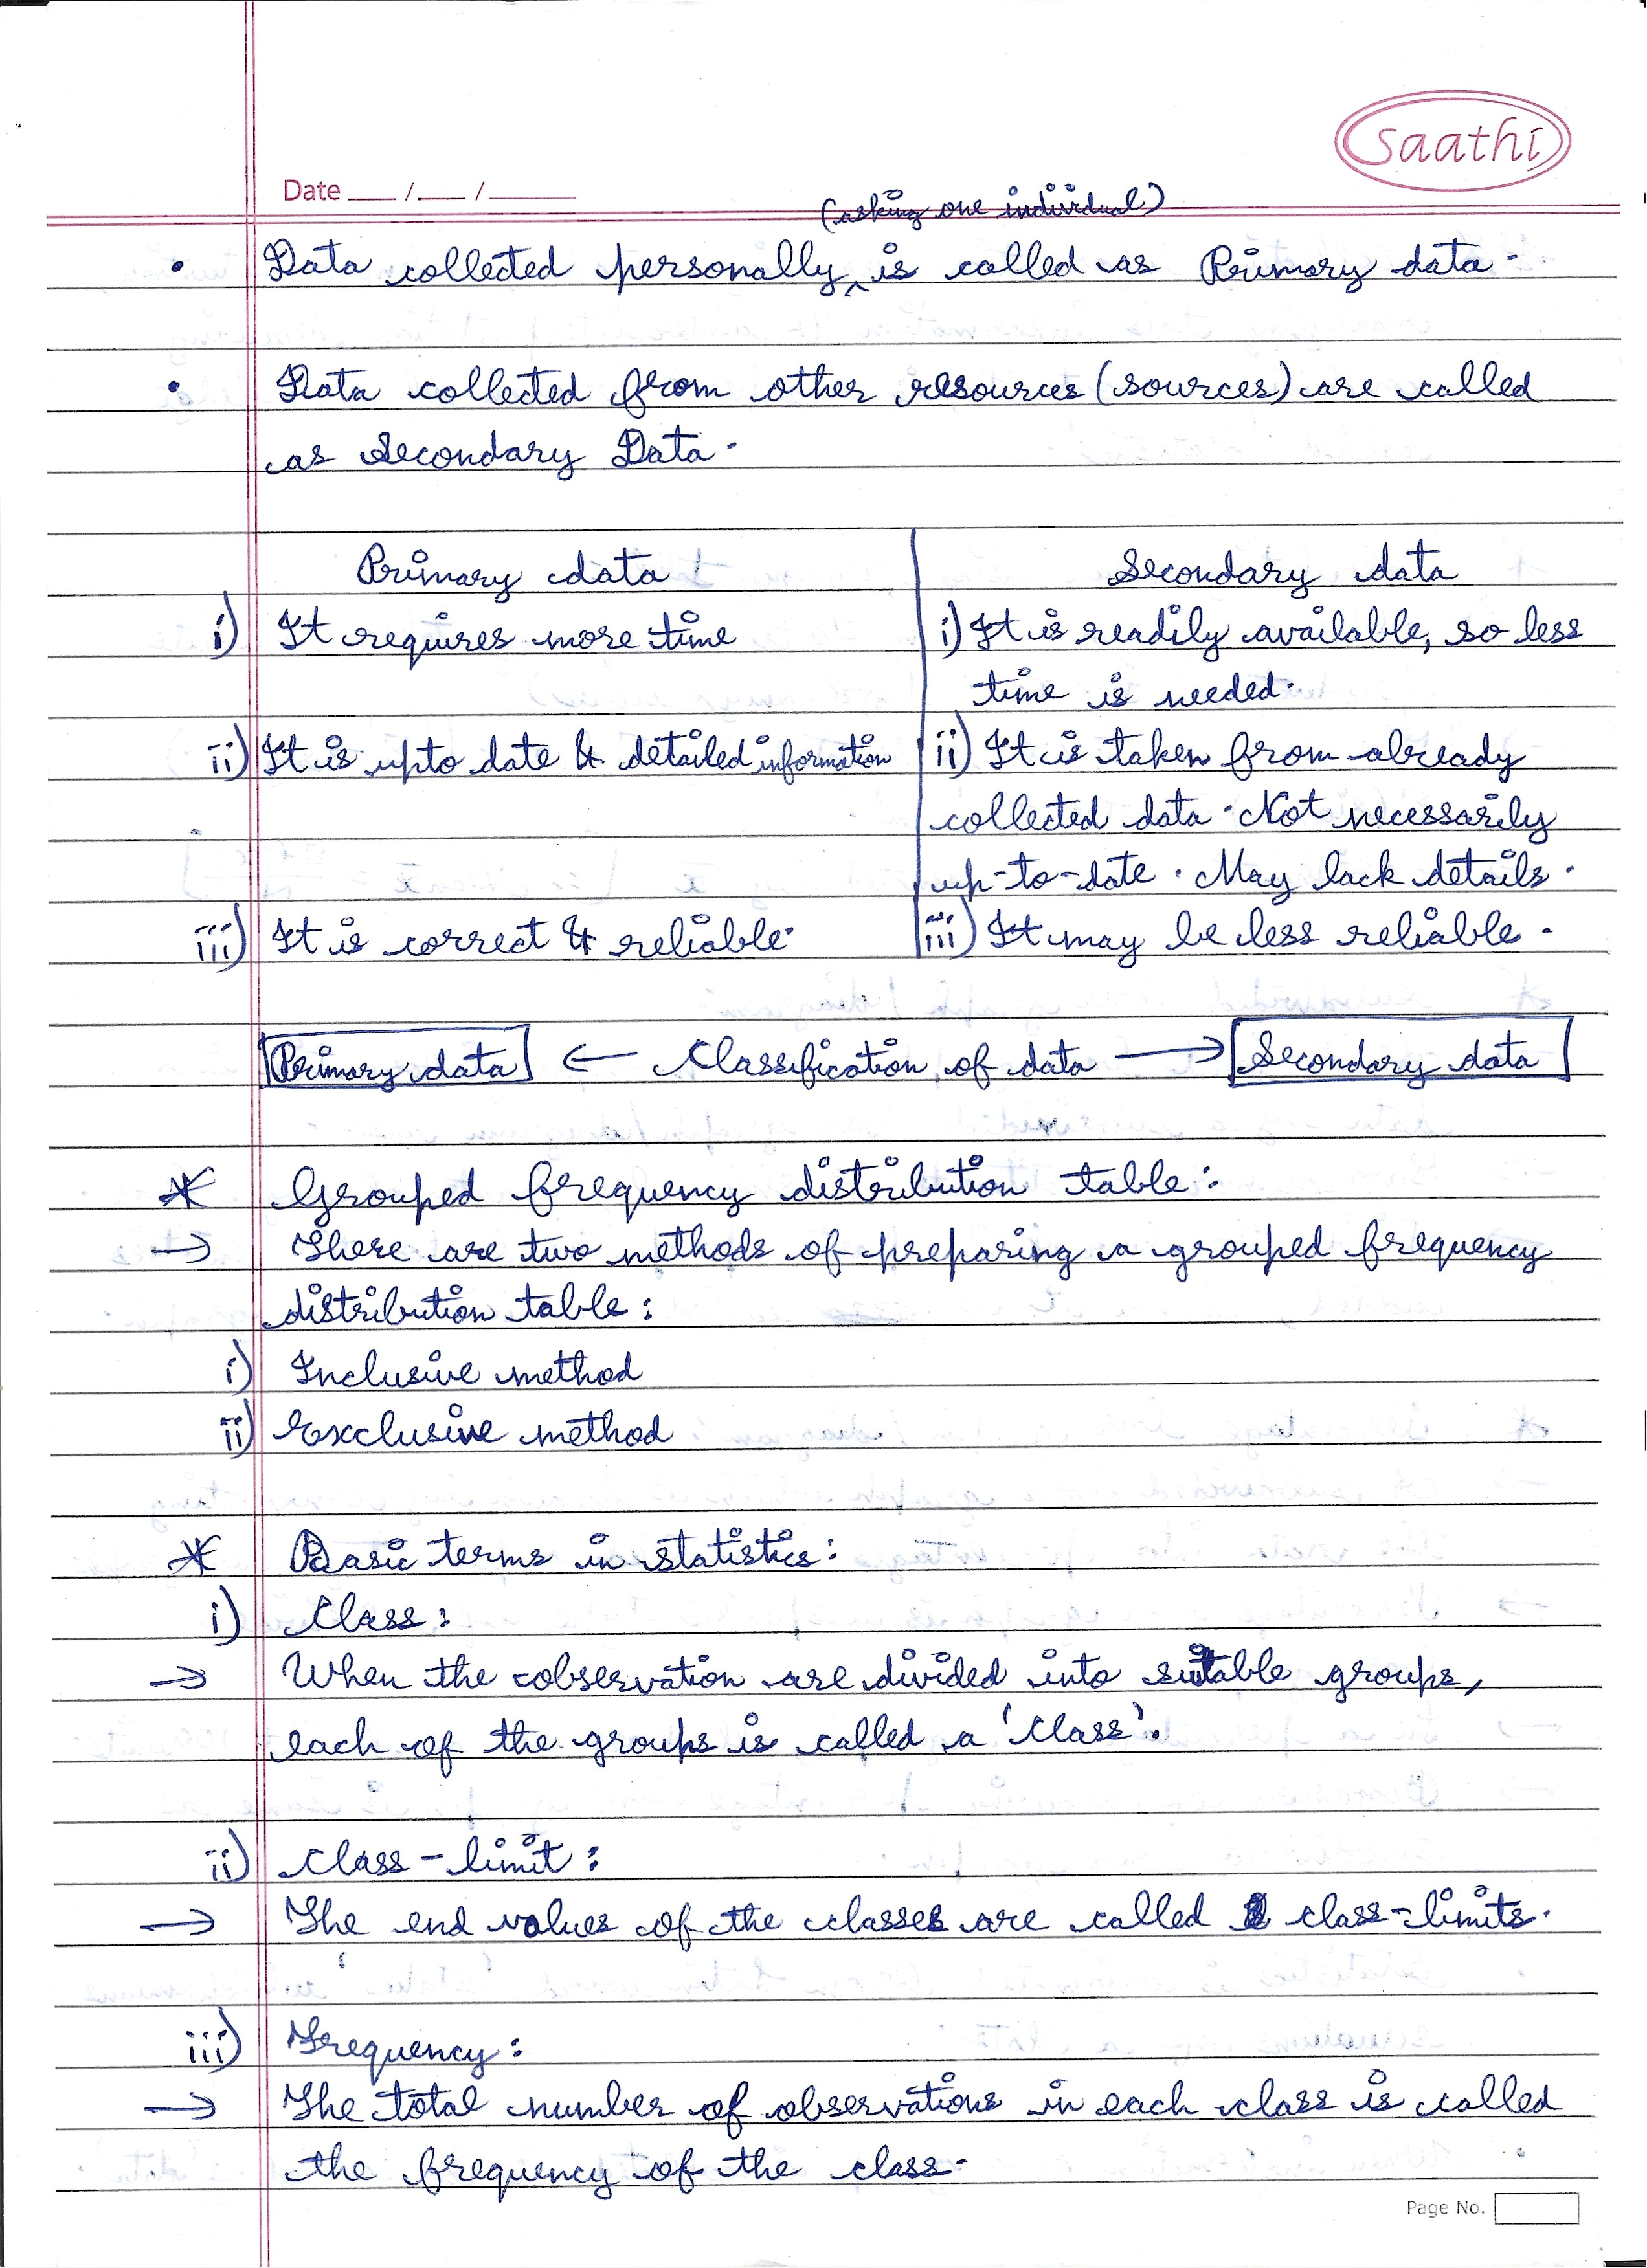 saathi
Date ___ /___ /_____
(asking one individual)
• Data collected personally ^ is called as Primary data.
• Data collected from other resources (sources) are called
as Secondary Data.
Primary data
Secondary data
i) It requires more time
i) It is readily available, so less
time is needed.
ii) It is upto date & detailed information
ii) It is taken from already
collected data. Not necessarily
up-to-date. May lack details.
iii) It is correct & reliable.
iii) It may be less reliable.
Primary data ← Classification of data → Secondary data
* Grouped frequency distribution table:
→ There are two methods of preparing a grouped frequency
distribution table:
i) Inclusive method
ii) Exclusive method
* Basic terms in statistics:
i) Class:
→ When the observation are divided into suitable groups,
each of the groups is called a 'Class'.
ii) Class-limit:
→ The end values of the classes are called class-limits.
iii) Frequency:
→ The total number of observations in each class is called
the frequency of the class.
Page No.